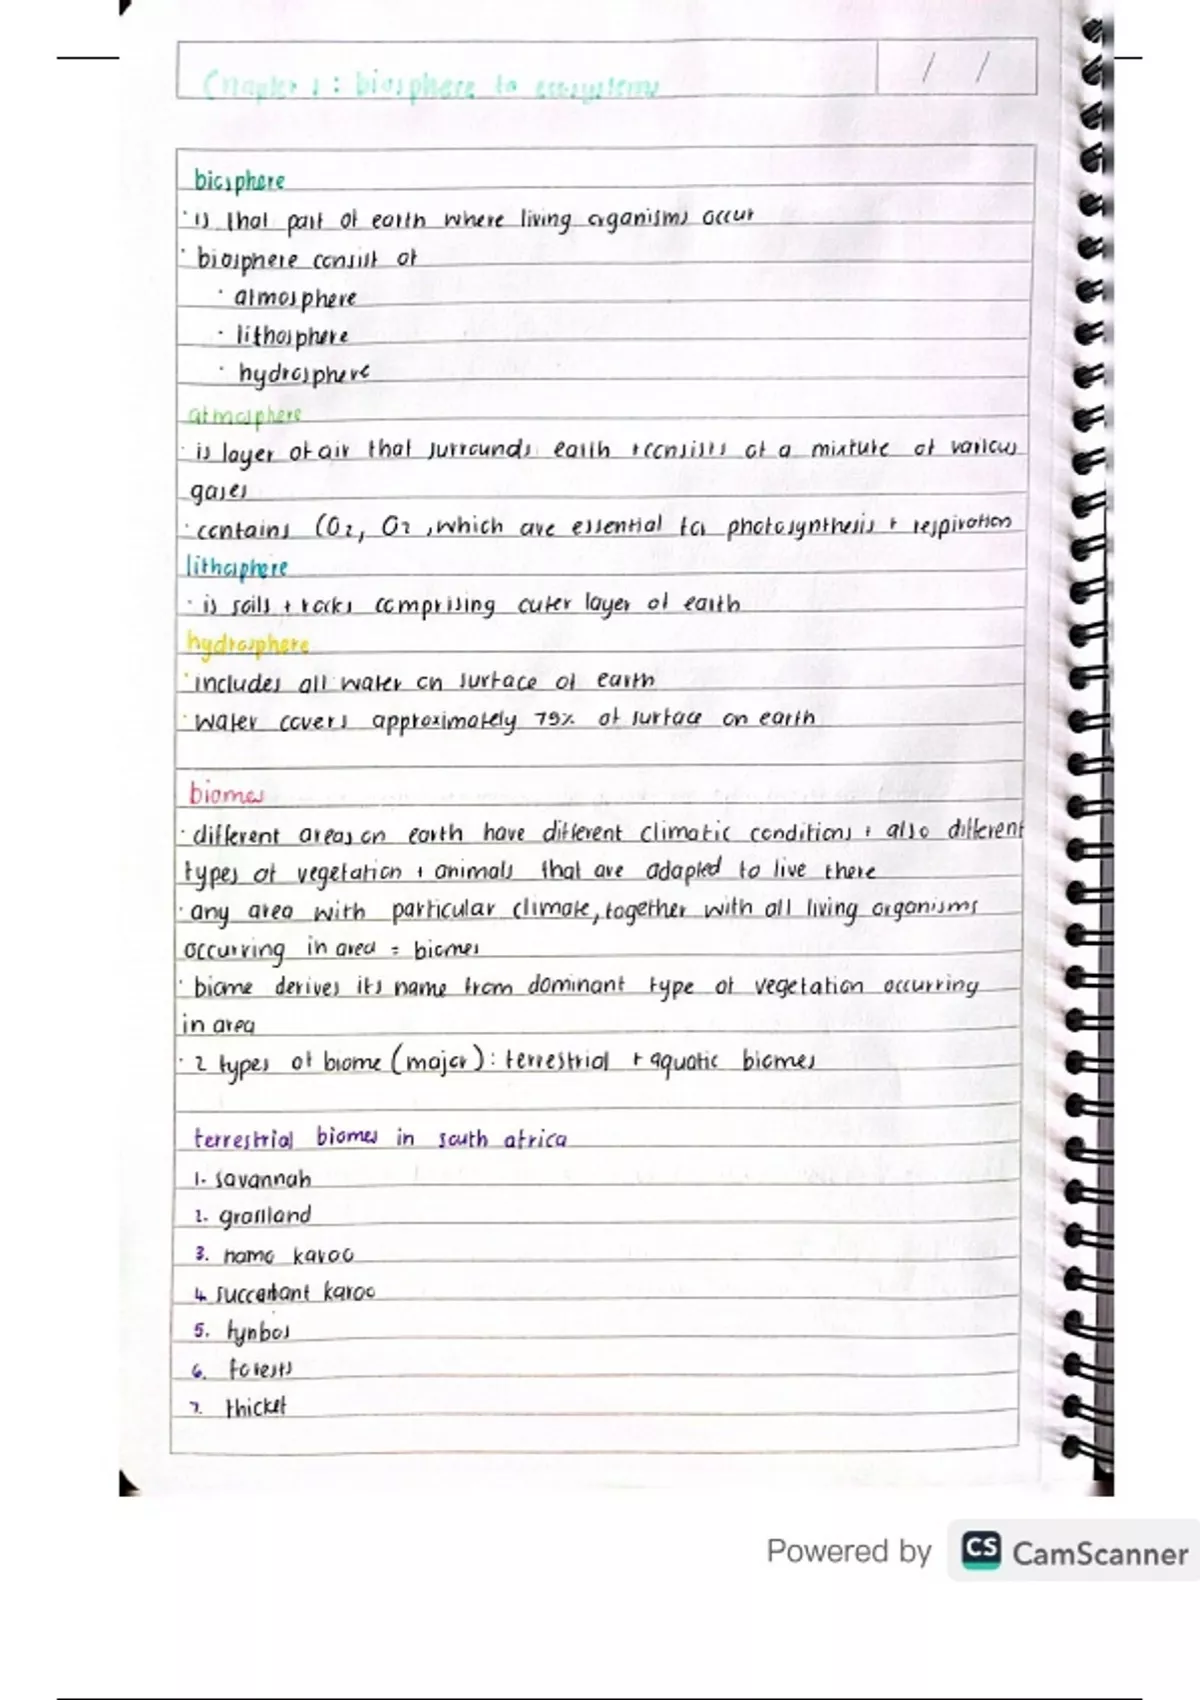 Chapter 1: biosphere to ecosystems
/ /
biosphere
· is that part of earth where living organisms occur
· biosphere consist of
· atmosphere
· lithosphere
· hydrosphere
atmosphere
· is layer of air that surrounds earth + consists of a mixture of various
gases
· contains CO2, O2, which are essential for photosynthesis + respiration
lithosphere
· is soils + rocks comprising outer layer of earth
hydrosphere
· includes all water on surface of earth
· water covers approximately 75% of surface on earth
biomes
· different areas on earth have different climatic conditions + also different
types of vegetation + animals that are adapted to live there
· any area with particular climate, together with all living organisms
occurring in area = biomes
· biome derives its name from dominant type of vegetation occurring
in area
· 2 types of biome (major): terrestrial + aquatic biomes
terrestrial biomes in south africa
1. savannah
2. grassland
3. nama karoo
4. karoo
5. fynbos
6. forests
7. thicket
Powered by CS CamScanner